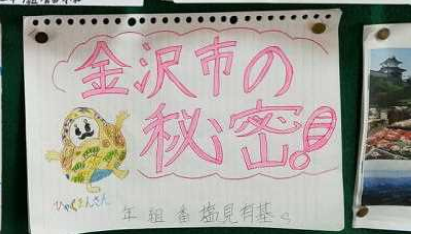 金沢市の
秘密!
ひゃくまんさん
年 組 番 塩見有基